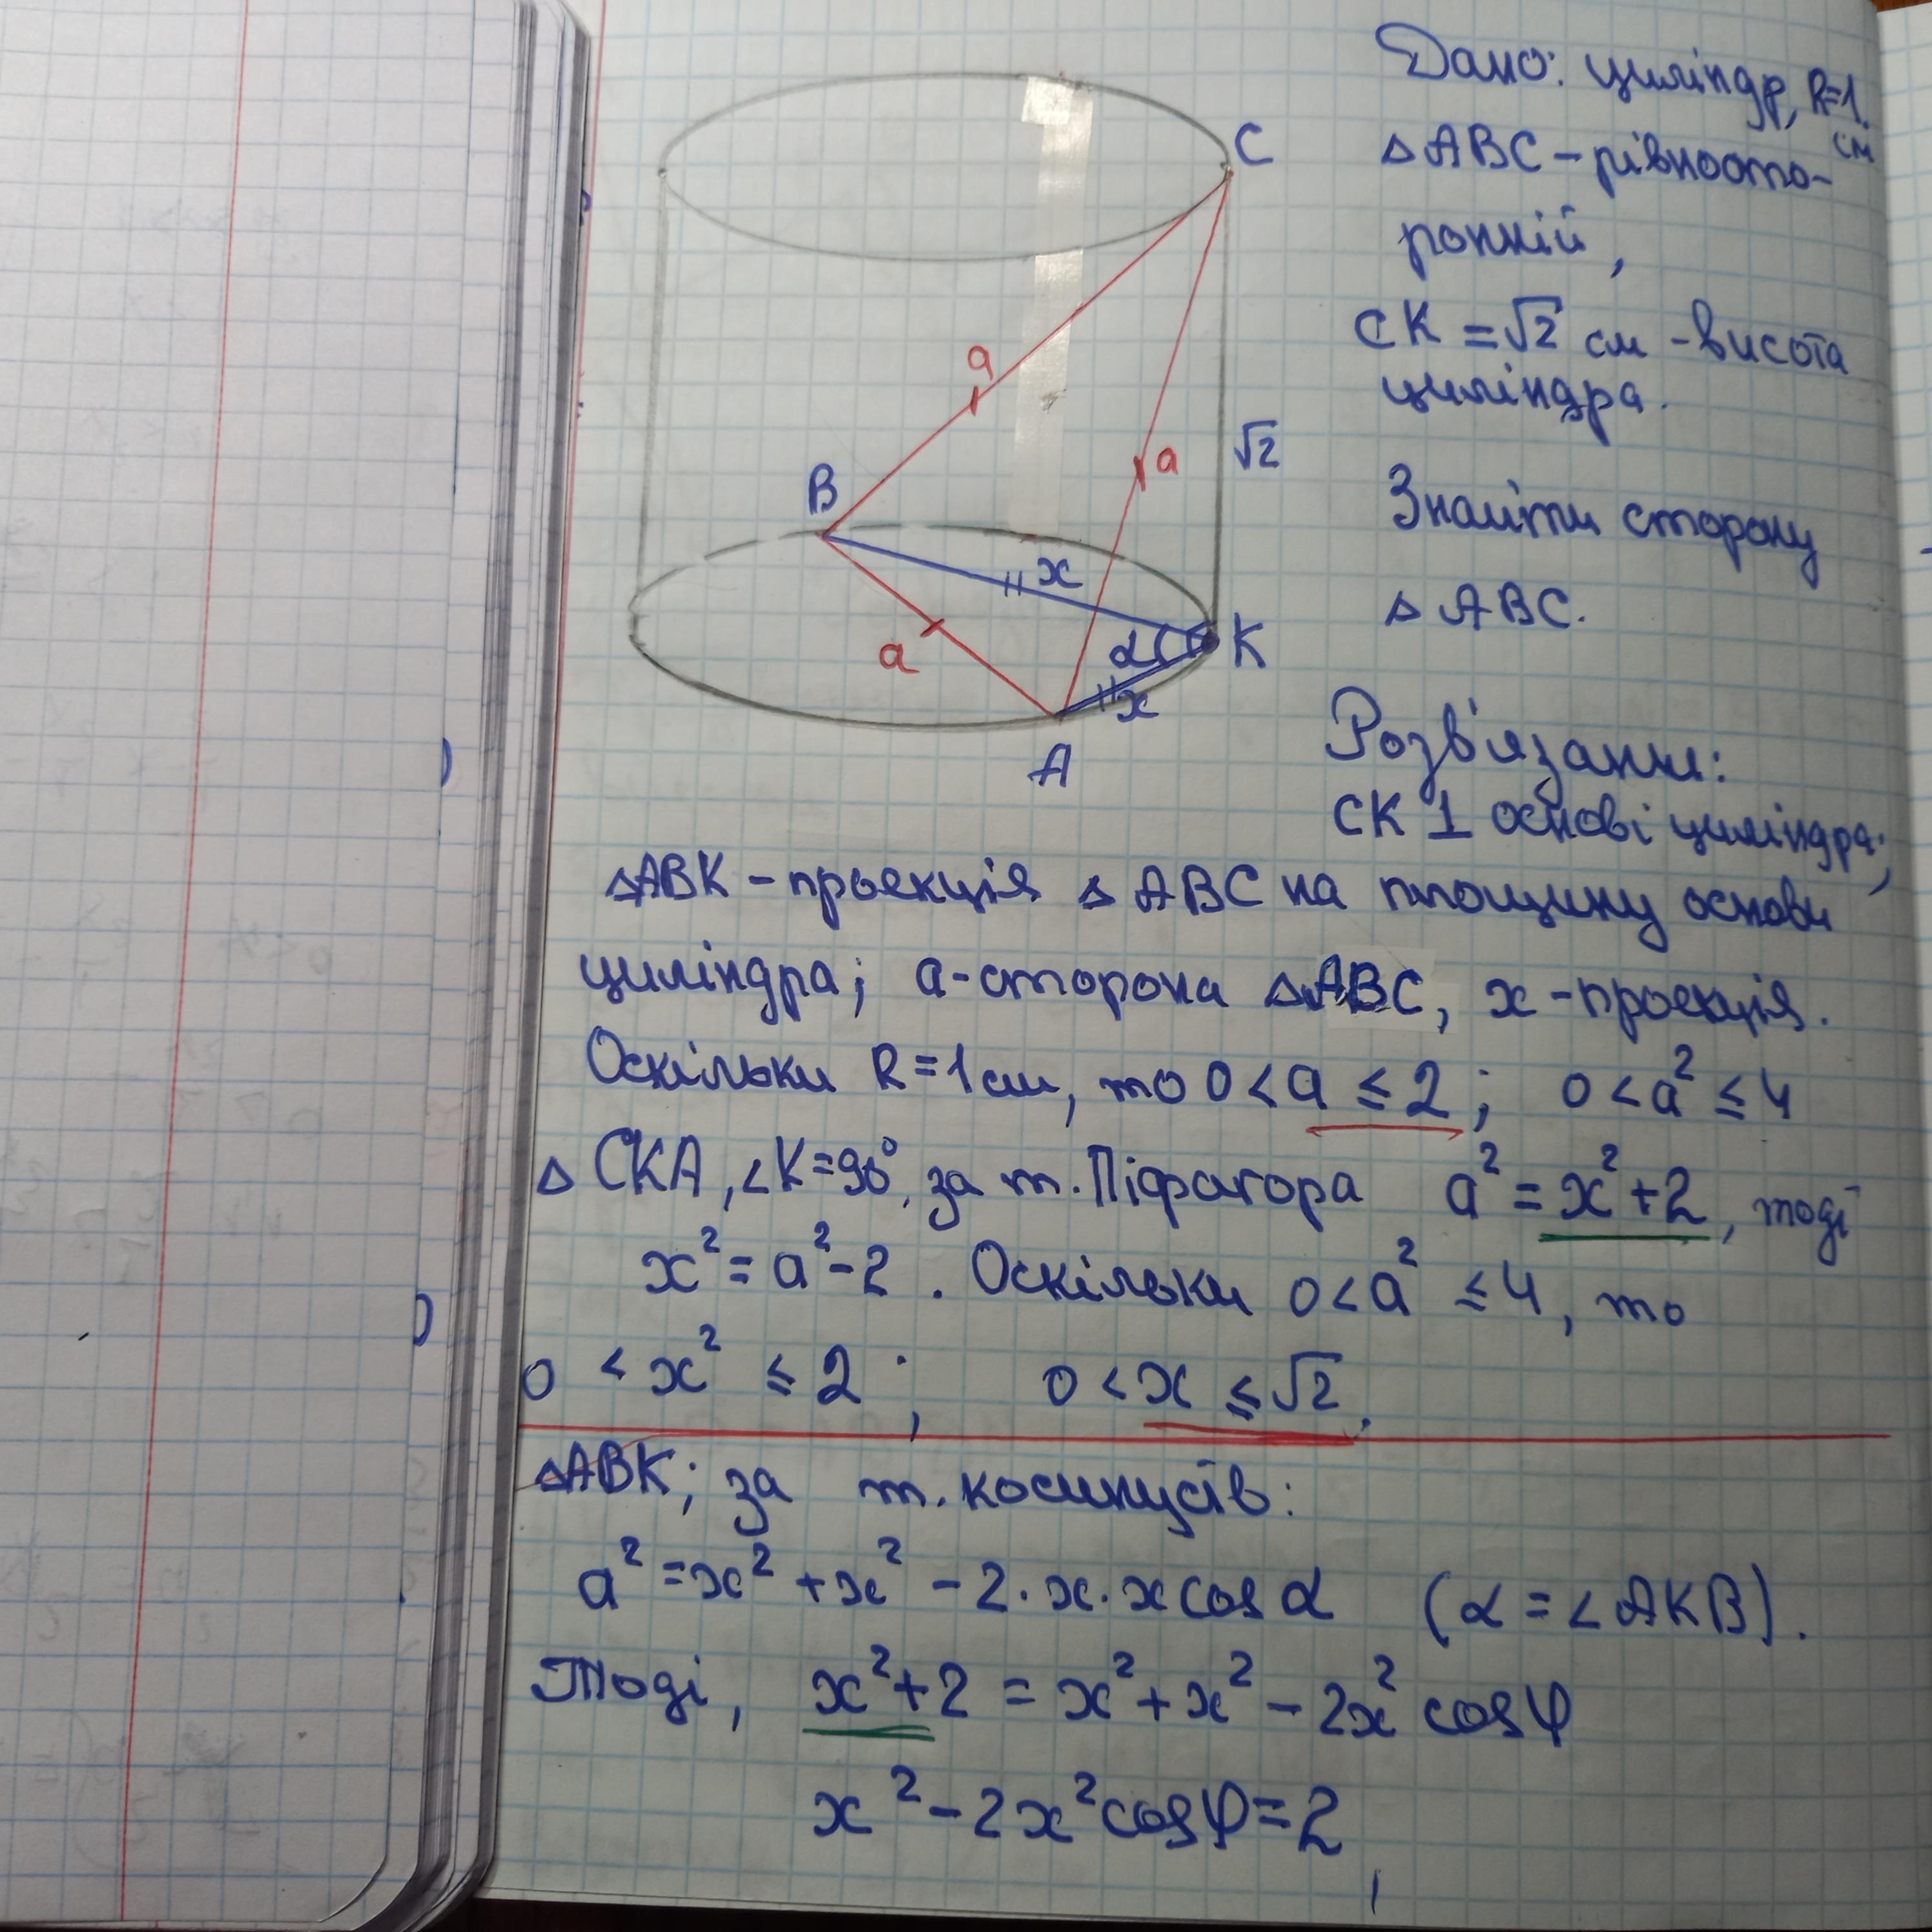 Дано: циліндр, R=1 см
△ABC – рівносто-
ронній,
CK = √2 см - висота
циліндра.
Знайти сторону
△ABC.
C
a
a
√2
B
x
a
α
K
x
A
Розв'язання:
CK ⊥ основі циліндра;
△ABK – проекція △ABC на площину основи
циліндра; a - сторона △ABC, x - проекція.
Оскільки R = 1 см, то 0 < a ≤ 2; 0 < a² ≤ 4
△ CKA, ∠K=90°, за т. Піфагора a² = x² + 2, тоді
x² = a² - 2. Оскільки 0 < a² ≤ 4, то
0 < x² ≤ 2; 0 < x ≤ √2.
△ABK; за т. косинусів:
a² = x² + x² - 2·x·x cos α (α = ∠AKB).
Тоді, x² + 2 = x² + x² - 2x² cos φ
x² - 2x² cos φ = 2,